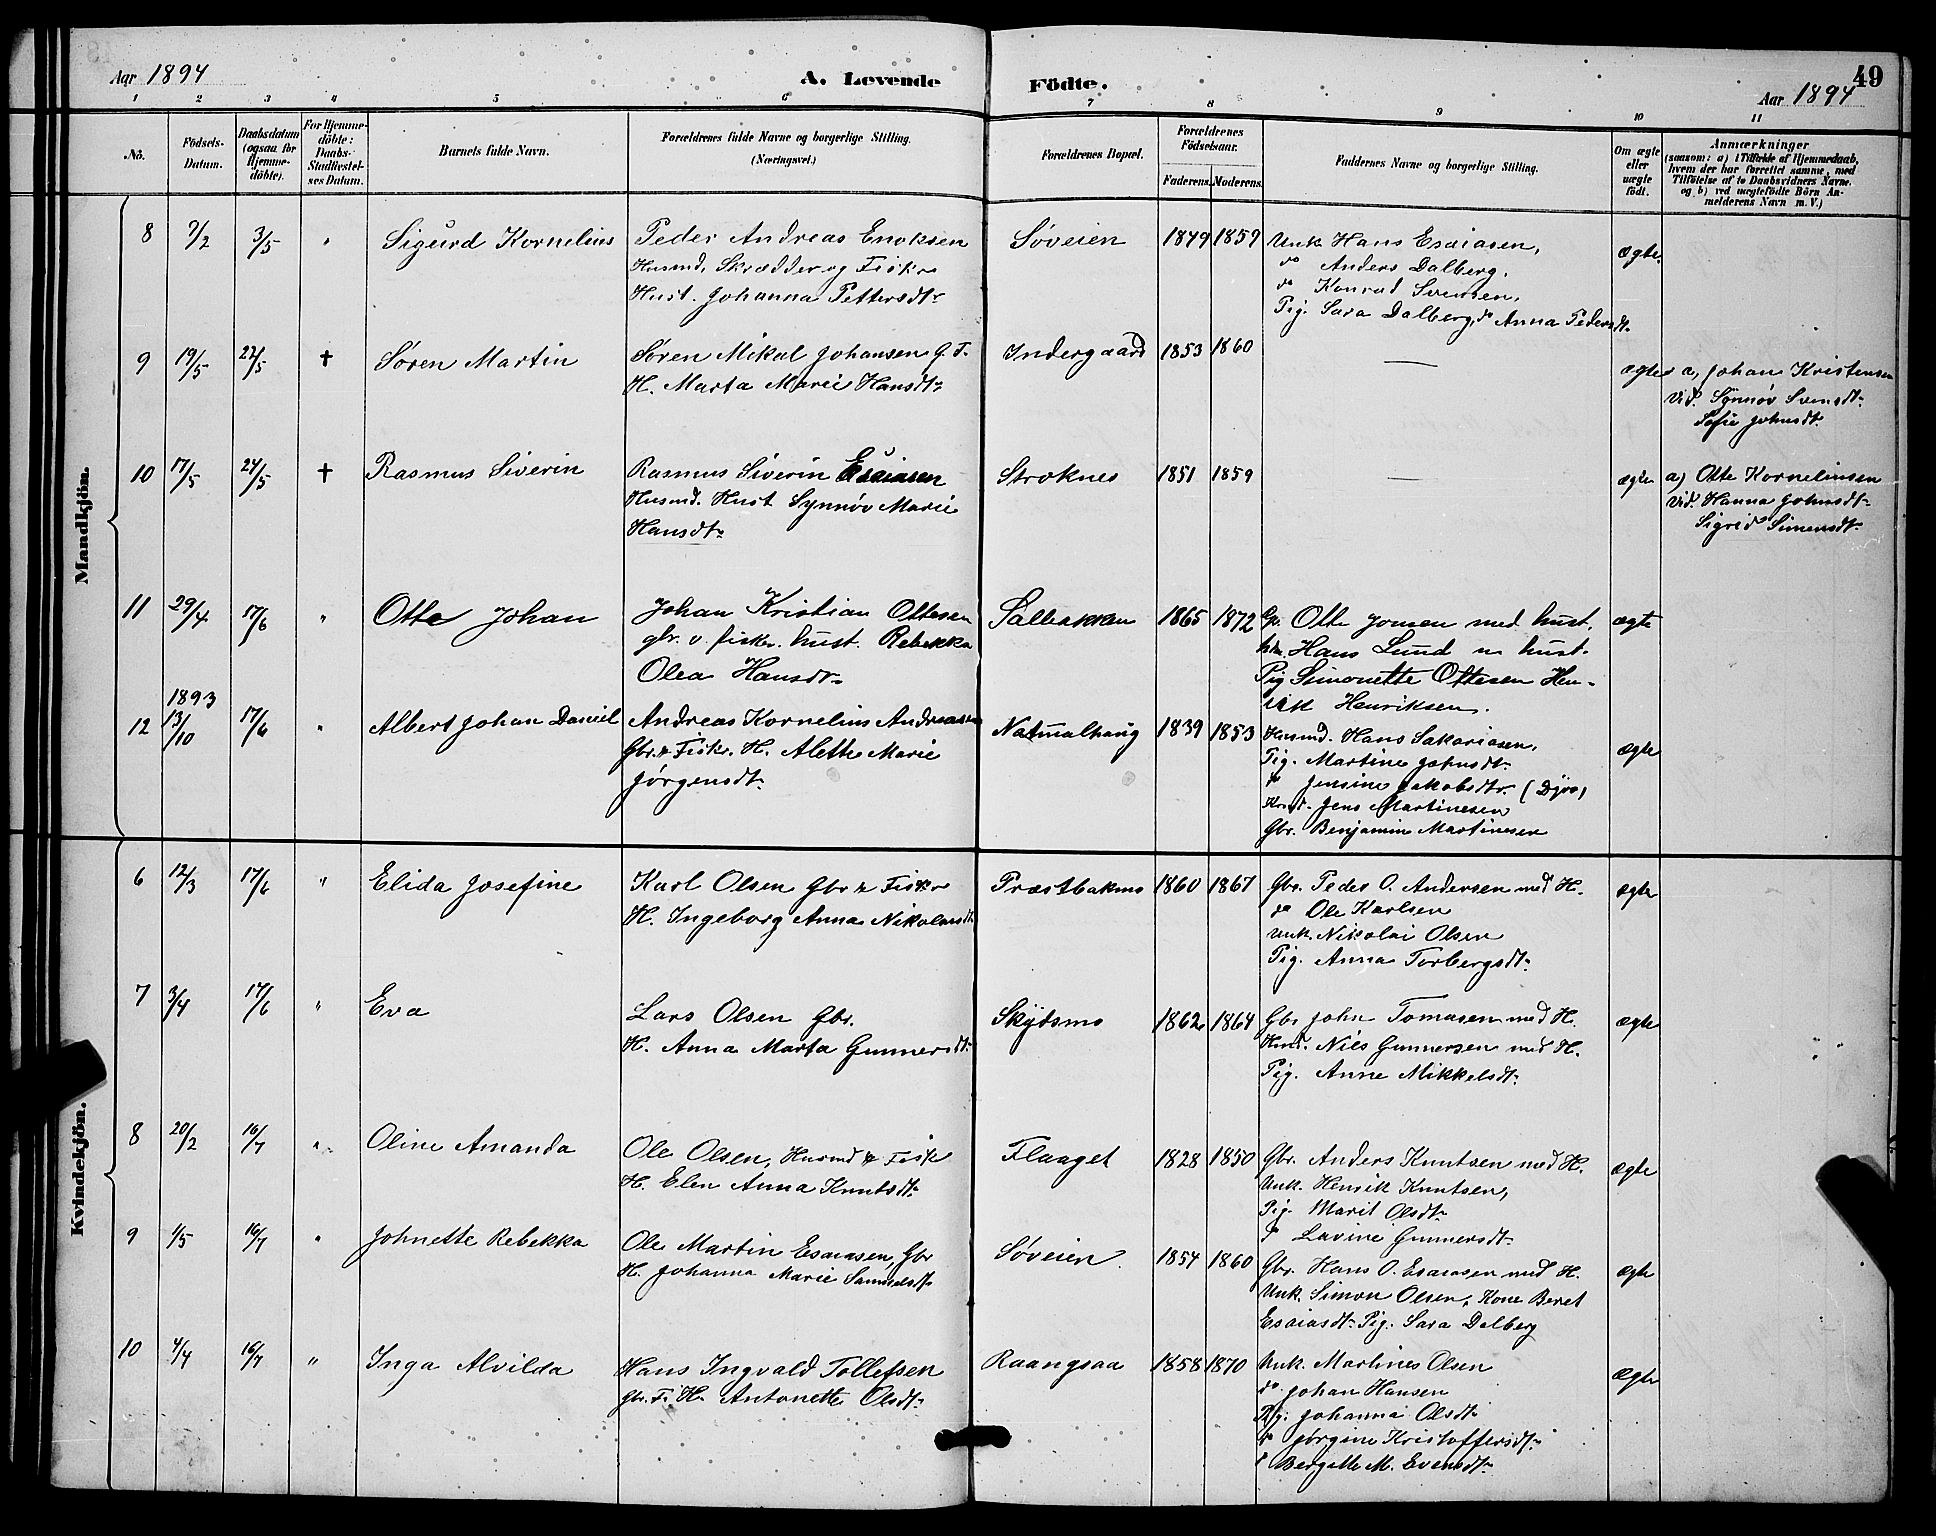 Aar 1894
A. Levende
Födte.
49
Aar 1894
1 2 3 4 5 6 7 8 9 10 11
No.
Födsels-Datum.
Daabsdatum (ogsaa for Hjemme-döbte).
For Hjemme-döbte: Daabs-Stadfæstel-ses Datum.
Barnets fulde Navn.
Forældrenes fulde Navne og borgerlige Stilling.
(Næringsvei.)
Forældrenes Bopæl.
Forældrenes Födselsaar.
Faderens.
Moderens.
Faddernes Navne og borgerlige Stilling.
Om ægte eller uægte födt.
Anmærkninger
(saasom: a) i Tilfælde af Hjemmedaab,
hvem der har forrettet samme, med
Tilföielse af to Daabsvidners Navne.
og b) ved uægtefödte Börn An-
melderens Navn m. V.)
Mandkjön.
8 7/2 3/5 " Sigurd Kornelius
Peder Andreas Enoksen
Husmd. Skrædder og Fisker
Hust. Johanna Pettersdtr
Søveien 1849 1859
Unk Hans Esaiasen,
do Anders Dalberg,
do Konrad Svensen,
Pig. Sara Dalberg, do Anna Pedersdtr
ægte.
9 19/5 22/5 † Søren Martin
Søren Mikal Johansen G. F.
H. Marta Marie Hansdtr
Indergaard 1853 1860
—
ægte
a, Johan Kristensen
Vid. Synnøv Svensdtr
Sofie Johnsdtr
10 17/5 24/5 † Rasmus Siverin
Rasmus Siverin Esaiasen
Husmd. Hust Synnøv Marie
Hansdtr
Stroknes 1851 1859
—
ægte
a) Otte Kornelinsen
Vid. Hanna Johnsdtr
Sigrid Simensdtr
11 29/4 17/6 " Otte Johan
Johan Kristian Ottesen
gbr. v. fisker. hust. Rebekka
Olea Hansdtr
Salbakken 1865 1872
Gp. Otte Jonsen med hust.
hm. Hans Lund m hust.
Pig Simonette Ottesen Hen-
rik Henriksen.
ægte
12 1893 13/10 17/6 " Albert Johan Daniel
Andreas Kornelius Andreasen
Gbr. & Fisker. H. Alette Marie
Jørgensdtr
Natmalhaug 1839 1853
Husmd. Hans Sakariasen,
Pig. Martine Johnsdtr
do Jensine Jakobsdtr. (Djvv)
Husmd. Jens Martinesen
Gbr. Benjamin Martinesen
ægte
Kvindekjön.
6 12/3 17/6 " Elida Josefine
Karl Olsen Gbr & Fisker
H. Ingeborg Anna Nikolaisdtr
Præstbakmo 1860 1867
Gbr. Peder O. Andersen med H.
do Ole Karlsen
Unk. Nikolai Olsen
Pig. Anna Torbergsdtr
ægte
7 3/4 17/6 " Eva
Lars Olsen Gbr.
H. Anna Marta Gunnersdtr
Skydsmo 1862 1864
Gbr John Tomasen med H.
Husmd. Nils Gunnersen med H.
Pig. Anne Mikkelsdtr
ægte
8 20/2 16/7 " Oline Amanda
Ole Olsen, Husmd & Fisk
H. Elen Anna Knutsdtr
Flaaget 1828 1850
Gbr. Anders Knutsen med H.
Unk. Henrik Knutsen,
Pig. Marit Olsdtr
do Lavine Gunnersdtr
ægte
9 1/5 16/7 " Johnette Rebekka
Ole Martin Esaiasen, Gbr
H. Johanna Marie Samuelsdtr
Søveien 1854 1860
Gbr. Hans O. Esaiasen med H.
Unk. Simon Olsen, Kone Beret
Esaiasdtr Pig. Sara Dalberg
ægte
10 4/4 16/7 " Inga Alvilda
Hans Ingvald Tollefsen
Gbr. Fi. H. Antonette Olsdtr
Raangsaa 1858 1870
Unk. Martines Olsen
do Johan Hansen
Pig. Johanna Olsdtr
do Jørgine Kristoffersdtr
do Bergitte M. Evensdtr
ægte